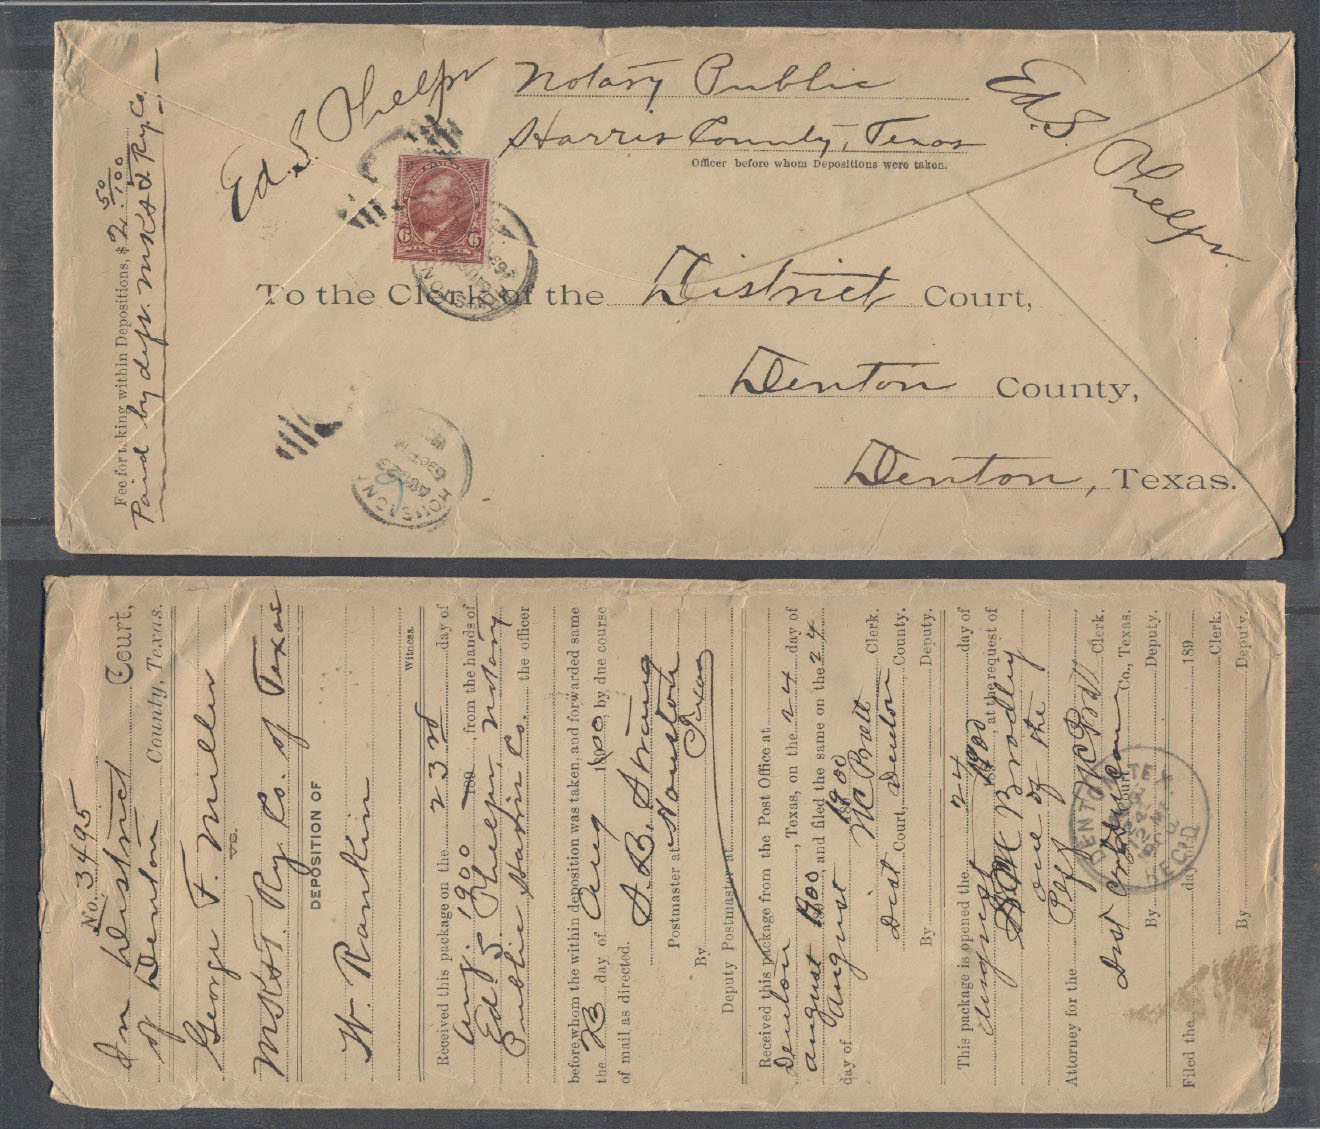 Ed. S. Phelps
Notary Public
Harris County, Texas
Officer before whom Depositions were taken.
Ed. S. Phelps
Fee for taking within Depositions, $ 2 50/100
Paid by deft. MK&T Ry Co.
6 6
HOUSTON
To the Clerk of the District Court,
Denton County,
Denton, Texas.
HOUSTON
AUG 23
630PM
No. 3495
In District Court,
of Denton County, Texas.
George F. Miller
vs.
MK&T. Ry. Co. of Texas
DEPOSITION OF
W. Rankin
Witness.
Received this package on the 23rd day of
Aug. 1900 189 , from the hands of
Ed S. Phelps, Notary
Public Harris Co. the officer
before whom the within deposition was taken, and forwarded same
the 23 day of Aug 1900, by due course
of mail as directed.
S. B. Strang
Postmaster at Houston
Texas
By
Deputy Postmaster at
Received this package from the Post Office at
Denton , Texas, on the 24 day of
august 1900, and filed the same on the 24
day of August 1900
Clerk.
Dist Court, Denton County.
By Deputy.
This package is opened the 24 day of
August 1900, at the request of
Bradley
one of the
Attorney for the Plff
Clerk.
Court Co., Texas.
By Deputy.
DENTON TEX
REC'D
Filed the day 189
Clerk.
By Deputy.